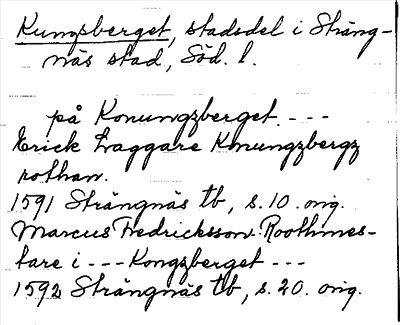 Kungsberget, stadsdel i Sträng-
näs stad, Söd. l.
på Konungzberget. ---
Erick Laggare Konungzbergz
rothan.
1591 Strängnäs tb, s. 10. orig.
Marcus Fredricksson Roothmes-
tare i --- Kongzberget ---
1592 Strängnäs tb, s. 20. orig.